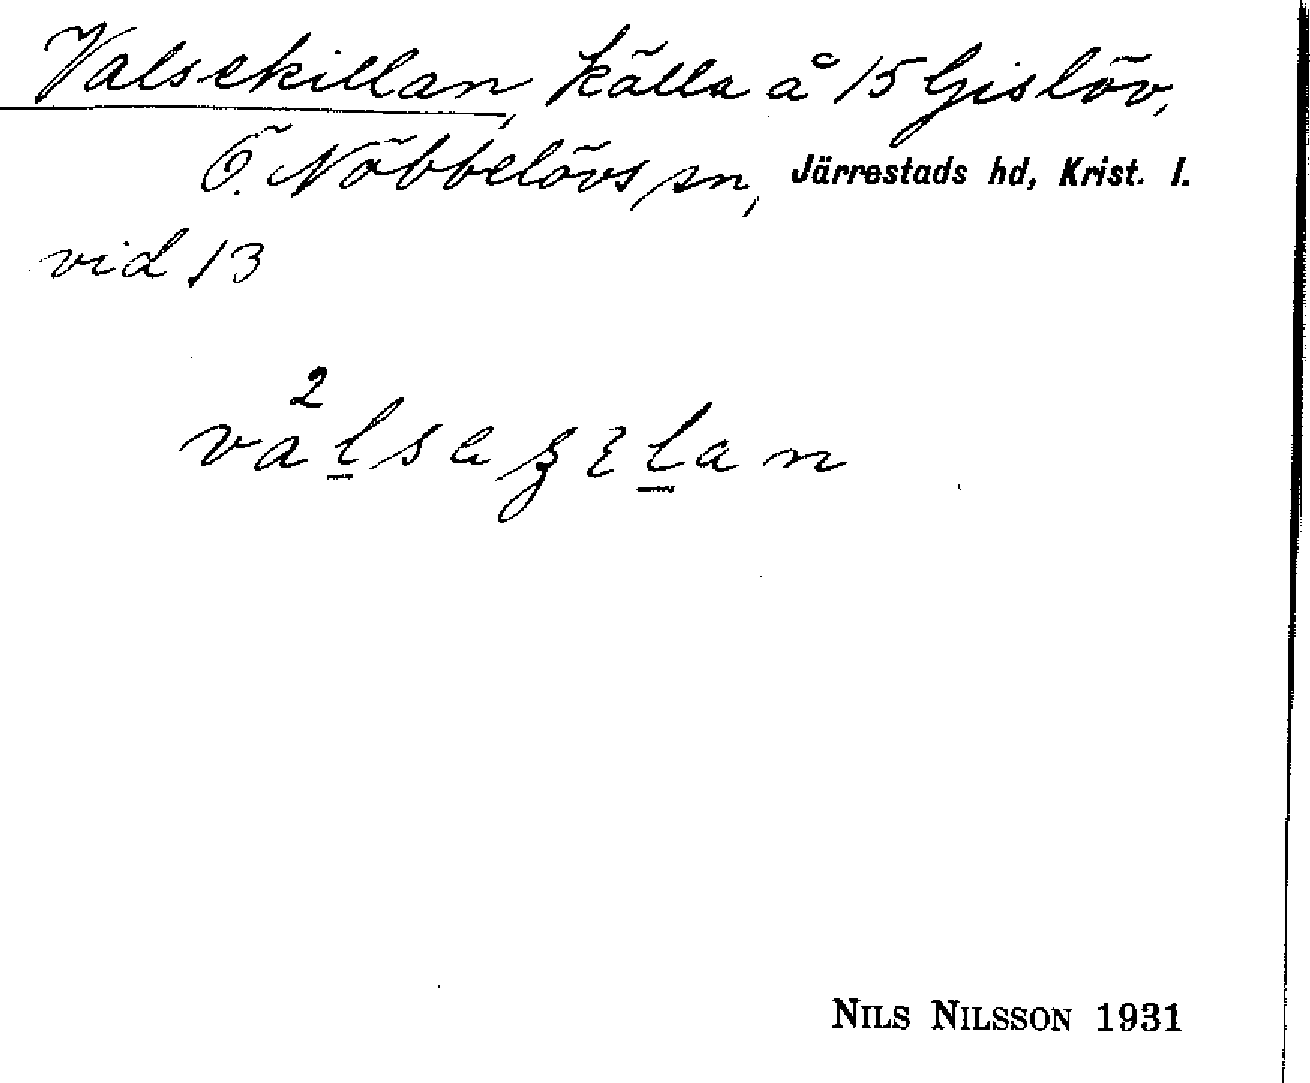 Valsekillan, källa å 15 Gislöv,
Ö. Nöbbelövs sn, Järrestads hd, Krist. l.
vid 13
Nils Nilsson 1931